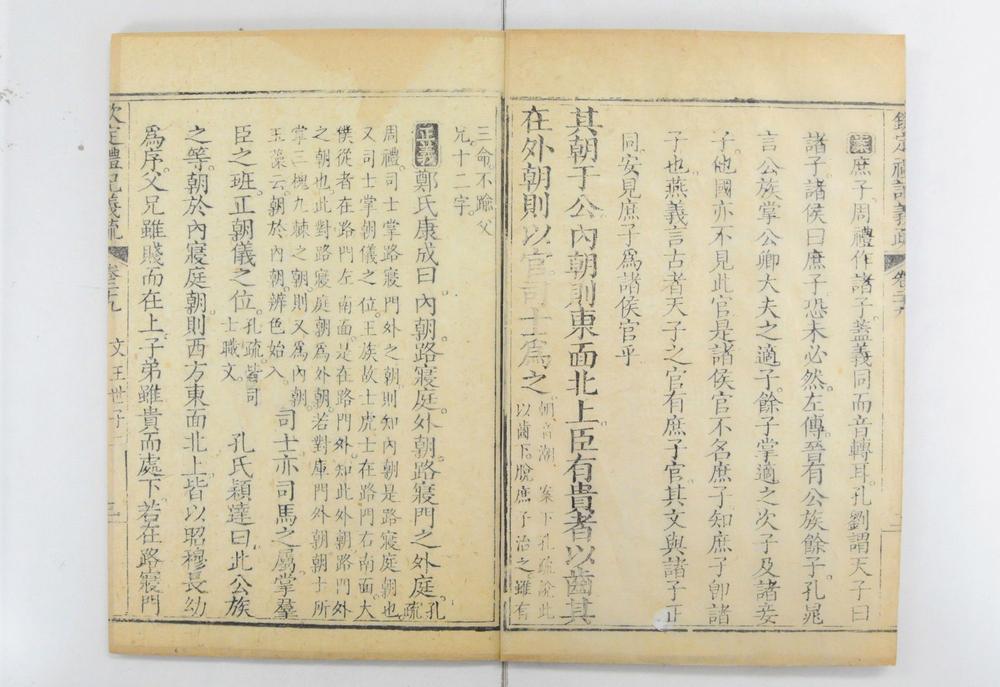 欽定禮記義疏 卷二十九 二
案庶子周禮作諸子蓋義同而音轉耳孔劉謂天子曰
諸子諸侯曰庶子恐未必然左傳晉有公族餘子孔晁
言公族掌公卿大夫之適子餘子掌適之次子及諸妾
子他國亦不見此官是諸侯官不名庶子知庶子卽諸
子也燕義言古者天子之官有庶子官其文與諸子正
同安見庶子爲諸侯官乎
其朝于公內朝則東面北上臣有貴者以齒其
在外朝則以官司士爲之 朝音潮 案下孔疏說此
以齒下脫庶子治之雖有
三命不踰父
兄十二字
正義鄭氏康成曰內朝路寢庭外朝路寢門之外庭 孔疏
周禮司士掌路寢門外之朝則知內朝是路寢庭朝也
又司士掌朝儀之位王族故士虎士在路門右南面大
僕從者在路門左南面是在路門外知此外朝路門外
之朝也此對路寢庭朝爲外朝若對庫門外朝朝士所
掌三槐九棘之朝則又爲內朝
玉藻云朝於內朝辨色始入 司士亦司馬之屬掌羣
臣之班正朝儀之位 孔疏皆司
士職文 孔氏穎達曰此公族
之等朝於內寢庭朝則西方東面北上皆以昭穆長幼
爲序父兄雖賤而在上子弟雖貴而處下若在路寢門
欽定禮記義疏 卷二十九 文王世子 三